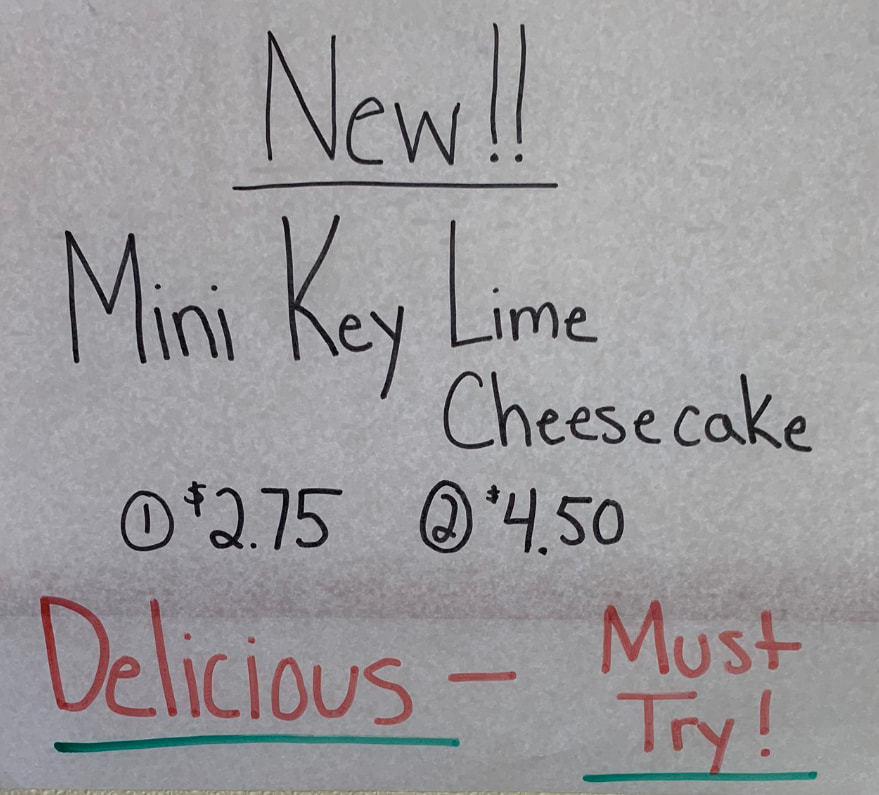 New!!
Mini Key Lime
Cheesecake
① $2.75 ② $4.50
Delicious — Must
Try!